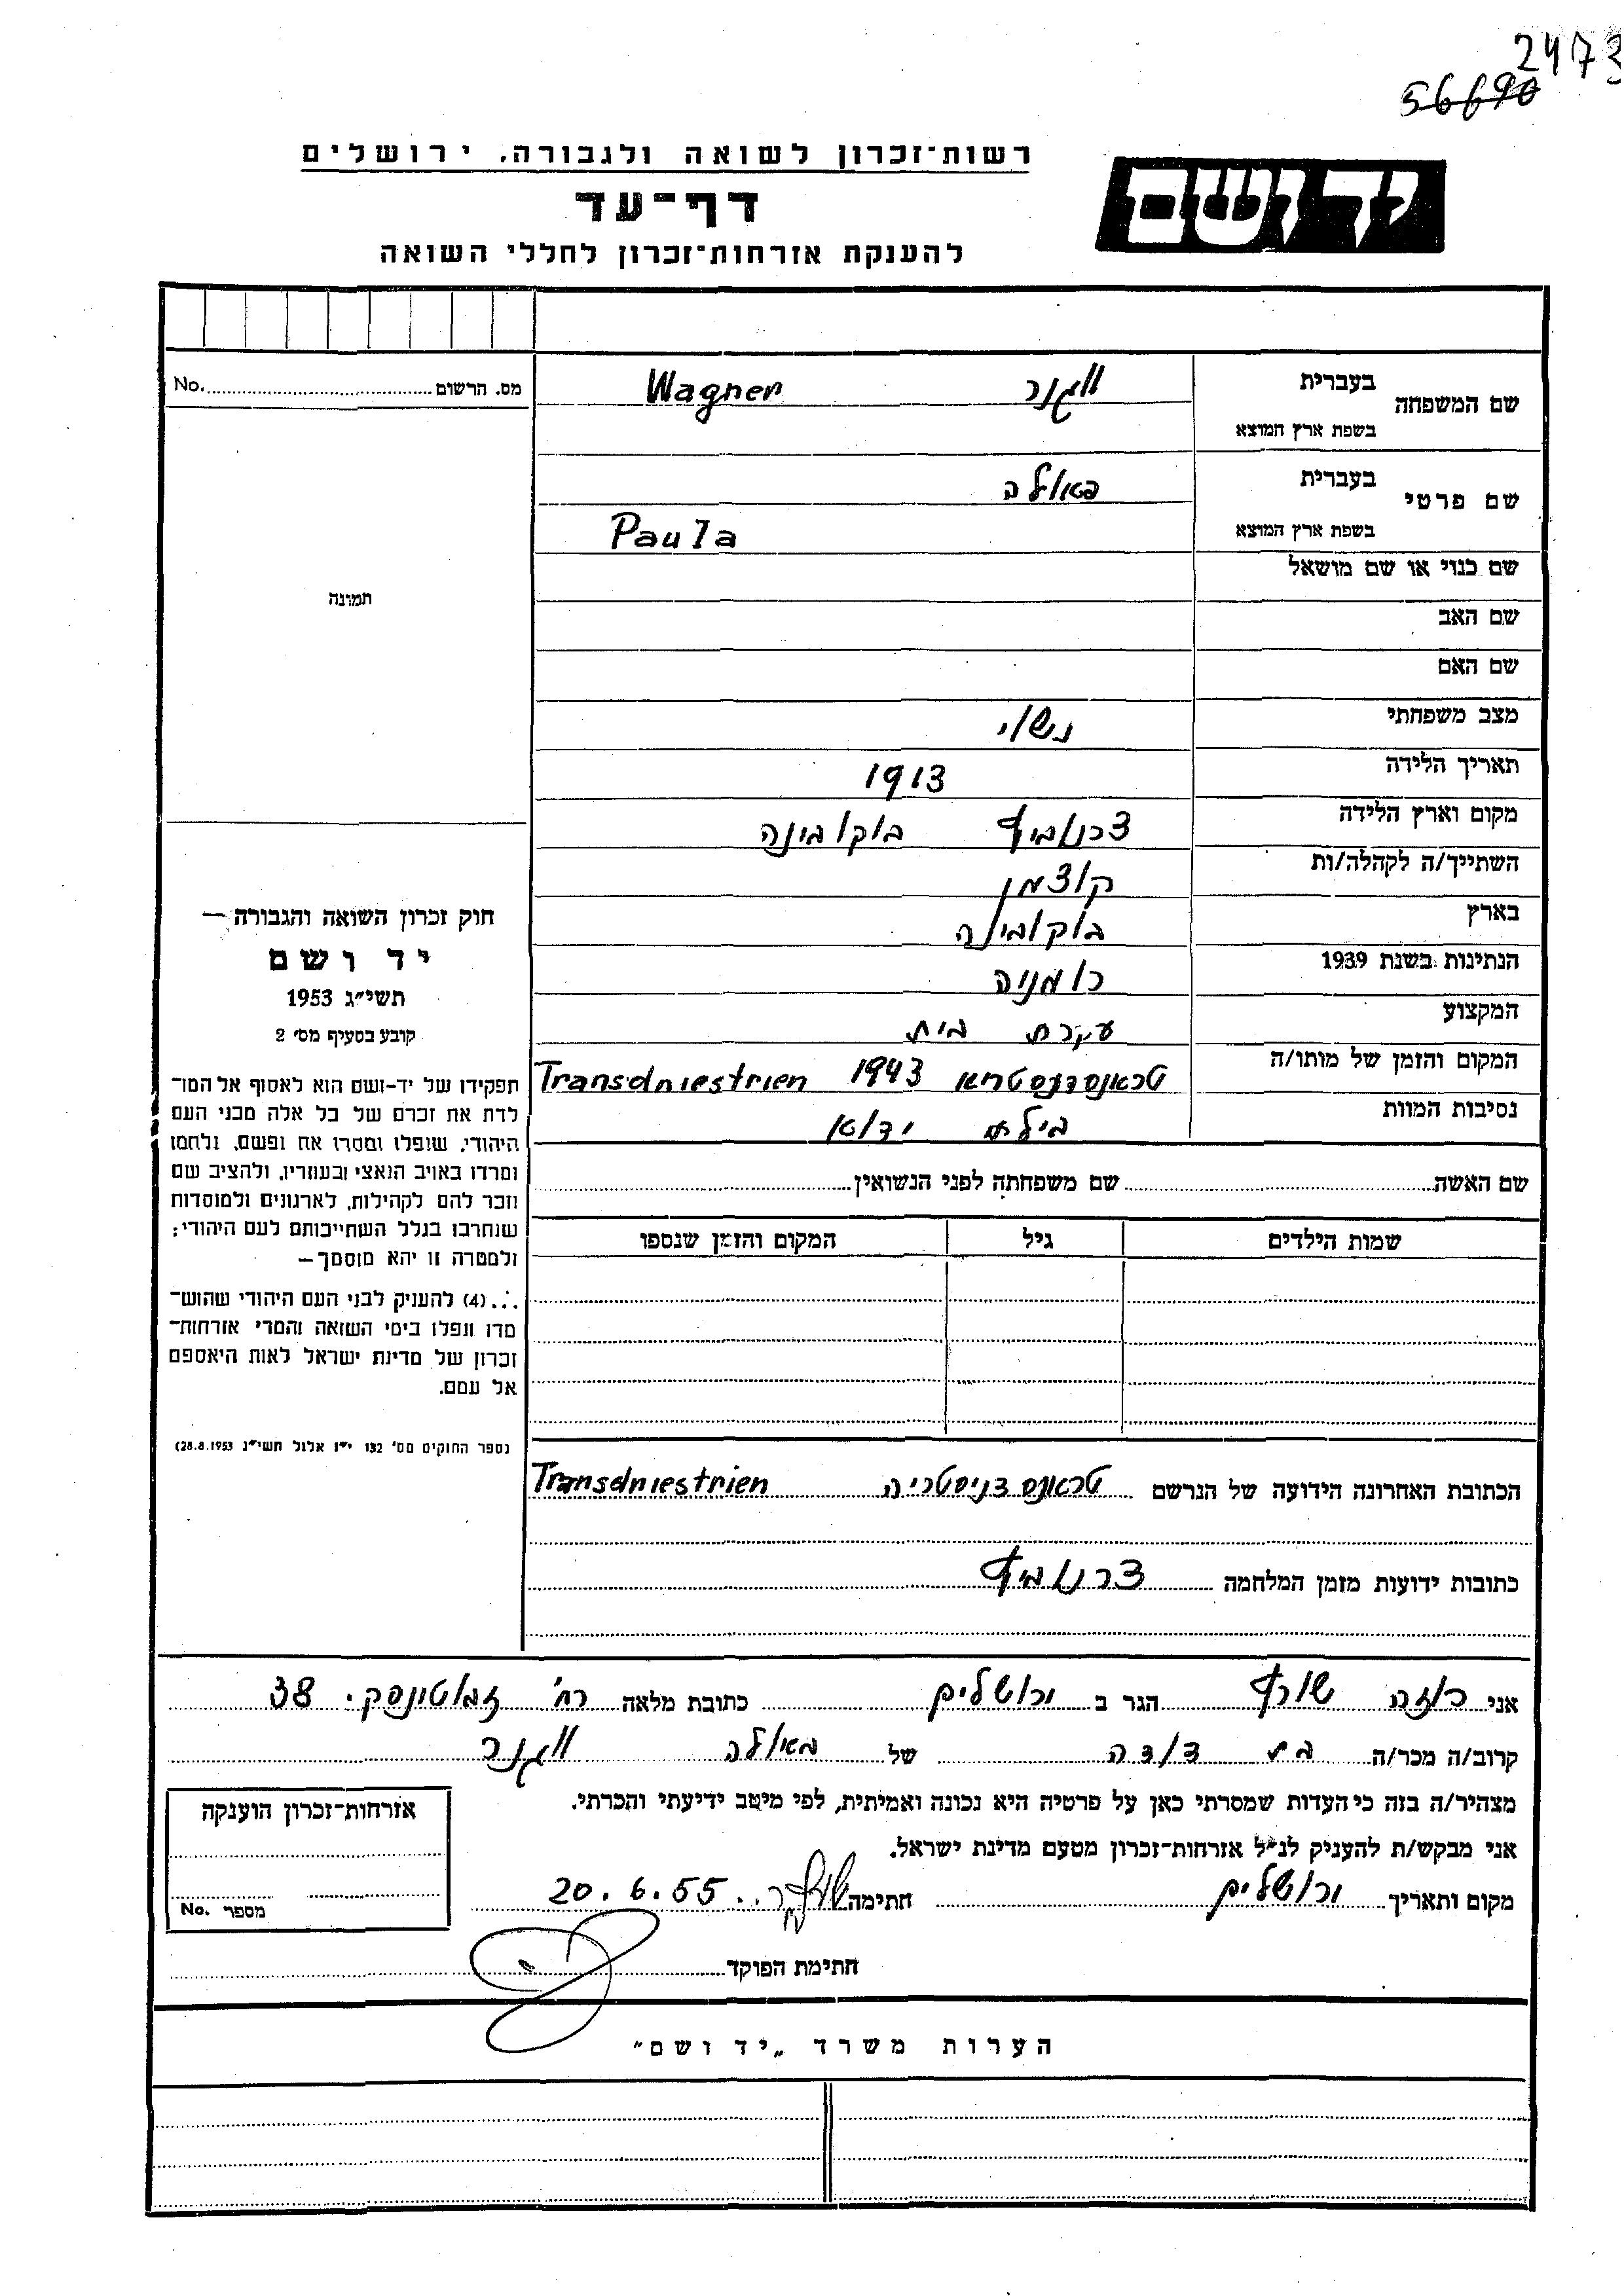 2473
56690
רשות־זכרון לשואה ולגבורה, ירושלים
יד ושם
דף־עד
להענקת אזרחות־זכרון לחללי השואה
שם המשפחה בעברית ווגנר Wagner
בשפת ארץ המוצא
שם פרטי בעברית פאולה
בשפת ארץ המוצא Paula
שם כנוי או שם מושאל
שם האב
שם האם
מצב משפחתי נשוי
תאריך הלידה 1913
מקום וארץ הלידה צרנוביץ בוקובינה
השתייך/ה לקהלה/ות קוצמן
בארץ בוקובינה
הנתינות בשנת 1939 רומניה
המקצוע עקרת בית
המקום והזמן של מותו/ה טראנסדניסטריא 1943 Transdniestrien
נסיבות המוות בילתי ידוע
שם האשה שם משפחתה לפני הנשואין
שמות הילדים גיל המקום והזמן שנספו
הכתובת האחרונה הידועה של הנרשם טראנס דניסטריה Transdniestrien
כתובות ידועות מזמן המלחמה צרנוביץ
מס. הרשום No.
תמונה
חוק זכרון השואה והגבורה —
יד ושם
תשי״ג 1953
קובע בסעיף מס׳ 2
תפקידו של יד-ושם הוא לאסוף אל המו־
לדת את זכרם של כל אלה מבני העם
היהודי, שנפלו ומסרו את נפשם, נלחמו
ומרדו באויב הנאצי ובעוזריו, ולהציב שם
וזכר להם לקהילות, לארגונים ולמוסדות
שנחרבו בגלל השתייכותם לעם היהודי;
ולמטרה זו יהא מוסמך —
...(4) להעניק לבני העם היהודי שהוש־
מדו ונפלו בימי השואה והמרי אזרחות־
זכרון של מדינת ישראל לאות היאספם
אל עמם.
(ספר החוקים מס׳ 132 י״ז אלול תשי״ג 28.8.1953)
אני רוזה שורף הגר ב ירושלים כתובת מלאה רח׳ זבוטינסקי 38
קרוב/ה מכר/ה בת דודה של פאולה ווגנר
מצהיר/ה בזה כי העדות שמסרתי כאן על פרטיה היא נכונה ואמיתית, לפי מיטב ידיעתי והכרתי.
אני מבקש/ת להעניק לנ״ל אזרחות־זכרון מטעם מדינת ישראל.
מקום ותאריך ירושלים חתימה 20.6.55
חתימת הפוקד
אזרחות־זכרון הוענקה
מספר No.
הערות משרד „יד ושם״